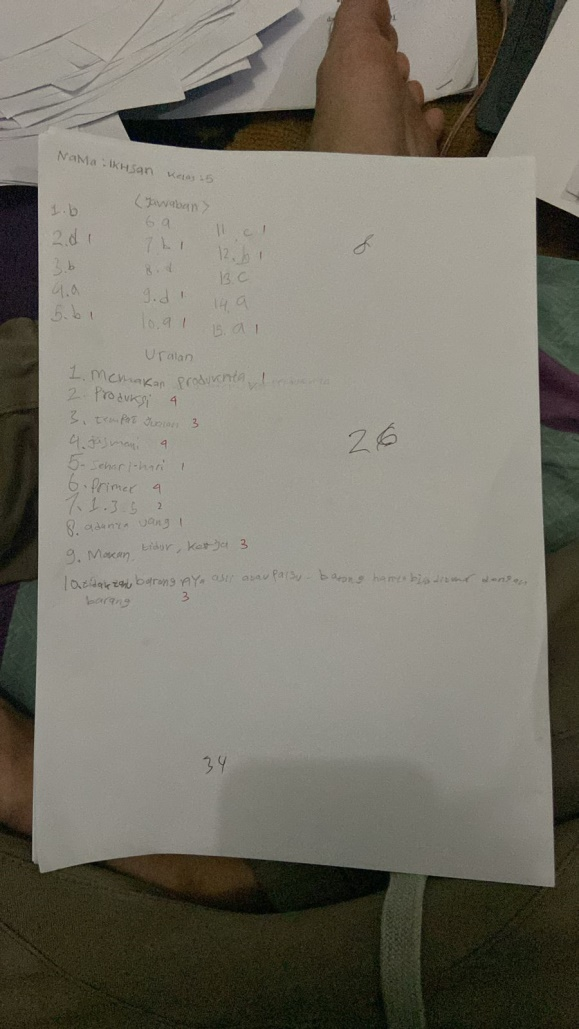 NaMa : IKHSan Kelas : 5
(Jawaban)
1. b
2. d 1
3. b
4. a
5. b 1
6. a
7. b 1
8. d
9. d 1
10. a 1
11. c 1
12. b 1
13. c
14. a
15. a 1
8
Uraian
1. Memakan 1
2. Produksi 4
3. 3
4. jasmani 4
5. sehari-hari 1
6. Primer 4
7. 1. 3. 3 2
8. adanya uang 1
9. Makan, tidur, kerja 3
26
10. barang nya asli atau Palsu. barang harus bisa dengan
barang 3
34